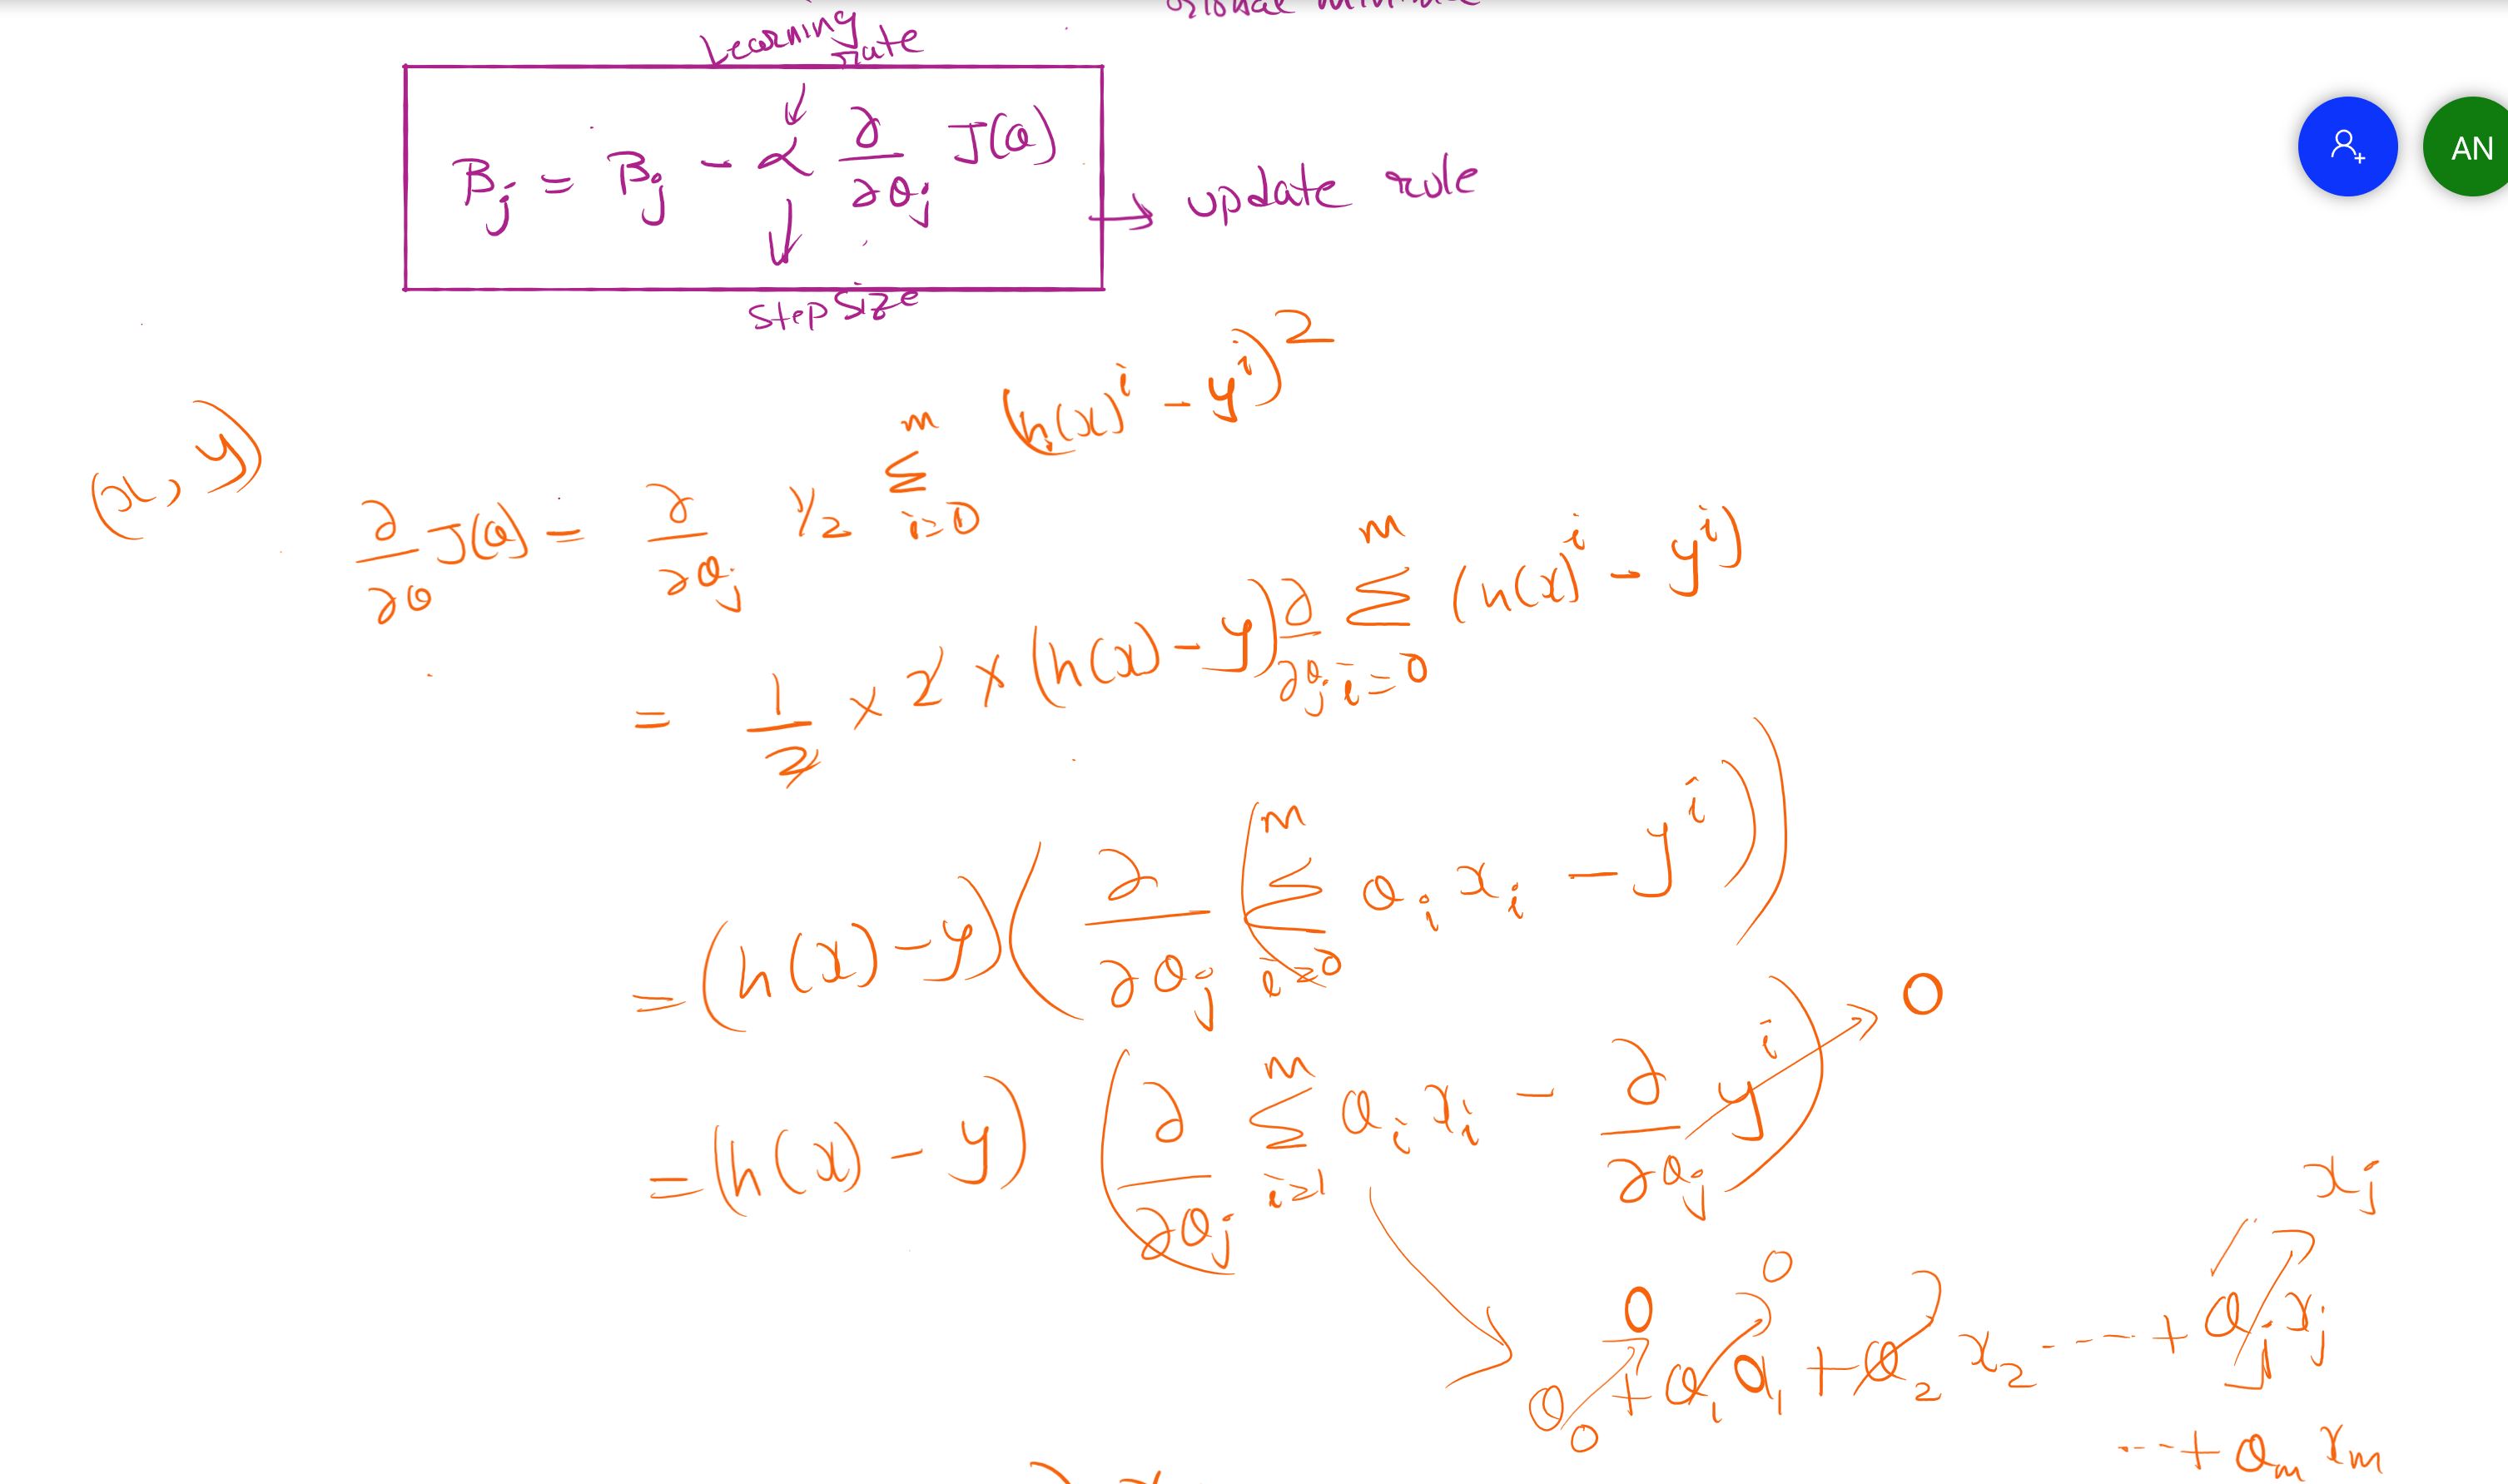 Learning
rate
B_j = B_j - α ∂/∂θ_j J(θ) → update rule
step size
(x, y)
∂/∂θ J(θ) = ∂/∂θ_j 1/2 Σ_{i=0}^{m} (h(x)^i - y^i)^2
= 1/2 × 2 × (h(x) - y) ∂/∂θ_j Σ_{i=0}^{m} (h(x)^i - y^i)
= (h(x) - y) (∂/∂θ_j (Σ_{i=0}^{m} θ_i x_i - y^i))
= (h(x) - y) (∂/∂θ_j Σ_{i=1}^{m} θ_i x_i - ∂/∂θ_j y^i) → 0
x_j
0 0
θ_0 + θ_1 θ_1 + θ_2 x_2 ---- + θ_j x_j
--- + θ_m x_m
AN